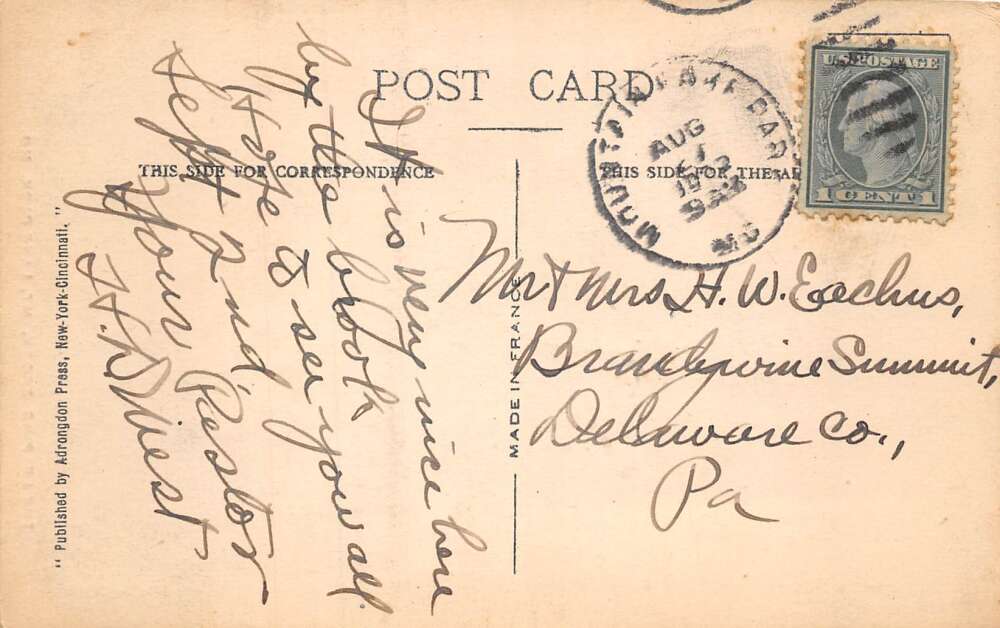 POST CARD
THIS SIDE FOR CORRESPONDENCE
THIS SIDE FOR THE AD
It is very nice here
by the brook
Hope to see you all
Sept 2nd,
Your Pastor
H. D. West
Mr & Mrs H. W. Eachus,
Brandywine Summit,
Delaware Co.,
Pa
MADE IN FRANCE
" Published by Adrongdon Press, New-York-Cincinnati. "
MOUNTAIN LAKE PARK
AUG
9 AM
MD
U.S. POSTAGE
1 CENT 1